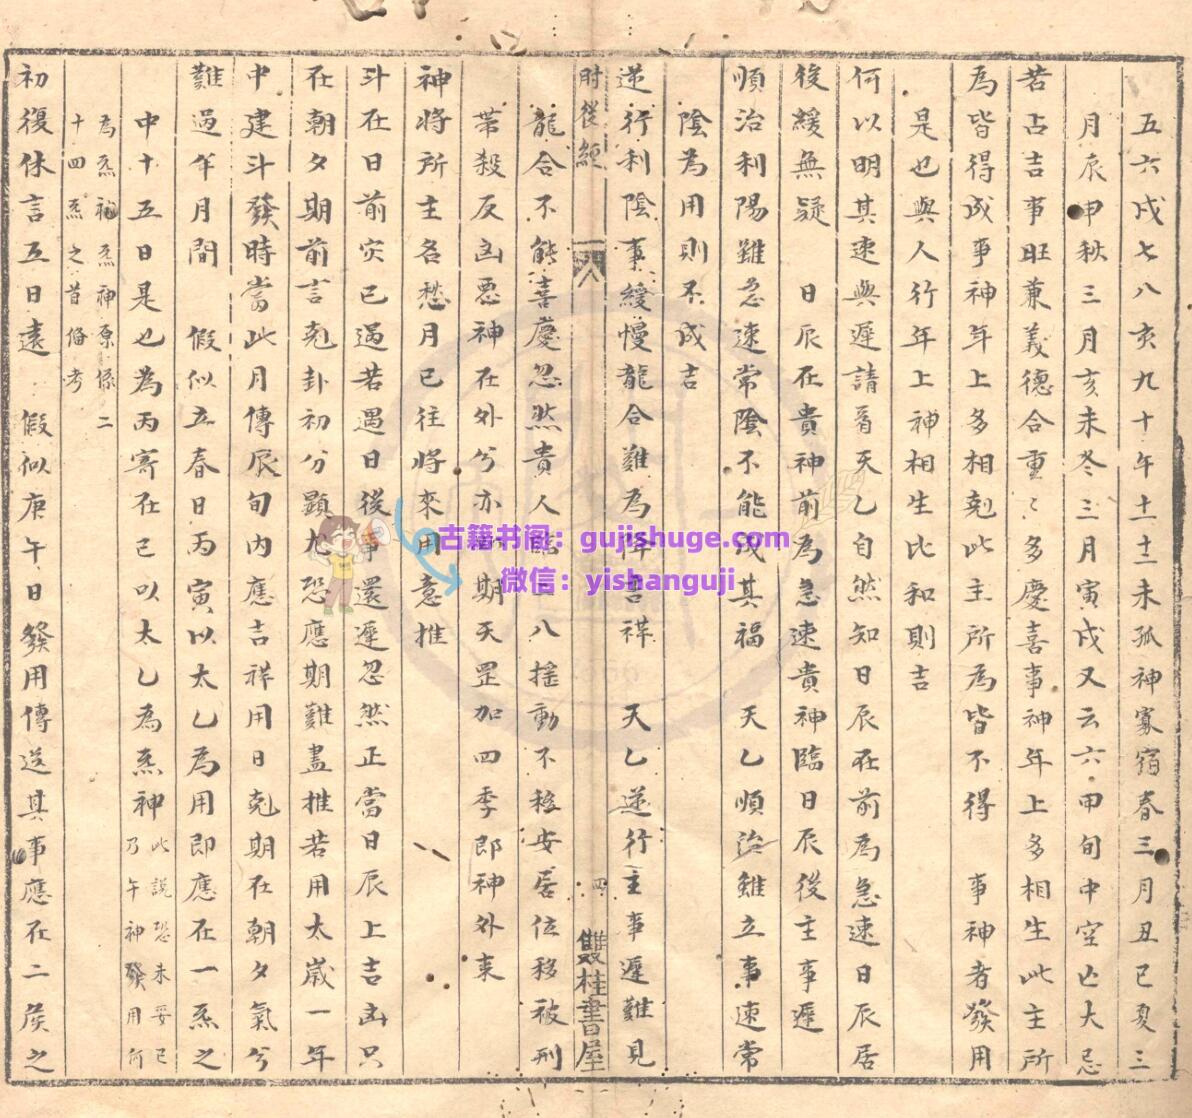 五六戌七八亥九十午十一十二未孤神寡宿春三月丑巳夏三
月辰申秋三月亥未冬三月寅戌又云六甲旬中空亡大忌
若占吉事旺兼義德合重〻多慶喜事神年上多相生此主所
為皆得成事神年上多相剋此主所為皆不得　事神者發用
是也與人行年上神相生比和則吉
何以明其速與遲請看天乙自然知日辰在前為急速日辰居
後緩無疑　日辰在貴神前為急速貴神臨日辰後主事遲
順治利陽雖急速常陰不能成其福　天乙順治雖立事速常
陰為用則不成吉
逆行利陰事緩慢龍合難為降吉祥　天乙逆行主事遲難見
時後經　一八　四　雙桂書屋
龍合不能喜慶忽然貴人臨二八搖動不移安居位移被刑
帶殺反凶惡神在外兮亦如期天罡加四季即神外来
神將所主名愁月已往將來用意推
斗在日前灾已過若遇日後事還遲忽然正當日辰上吉凶只
在朝夕期前言剋卦初分顯尤恐應期難盡推若用太歲一年
中建斗發時當此月傳辰旬内應吉祥用日剋期在朝夕氣兮
難過年月間　假似立春日丙寅以太乙為用即應在一炁之
中十五日是也為丙寄在巳以太乙為炁神此說恐未妥巳
乃午神發用何
為炁神炁神原係二
十四炁之首俻考
初復休言五日遠　假似庚午日發用傳送其事應在二侯之
古籍书阁：gujishuge.com
微信：yishanguji